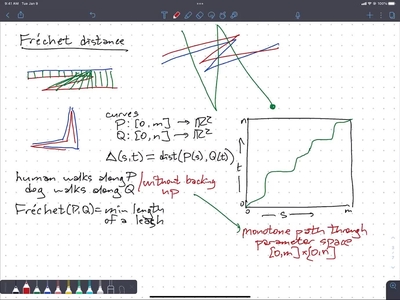 9:41 AM Tue Jan 6
Fréchet distance
curves
P: [0,m] → ℝ²
Q: [0,n] → ℝ²
Δ(s,t) = dist(P(s),Q(t))
human walks along P
dog walks along Q
/without backing
up
Fréchet(P,Q) = min length
of a leash
n
t
0
0
— s —
m
monotone path through
parameter space
[0,m]×[0,n]